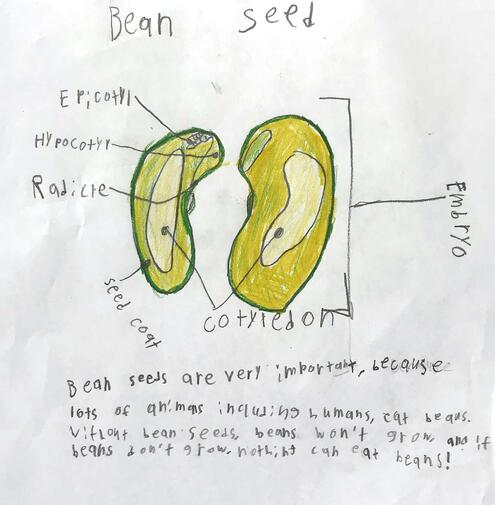 Bean seed
Epicotyl
Hypocotyl
Radicre
seed coat
cotyredon
Embryo
Bean seeds are very important, because
lots of animas including humans, eat beans.
Vithout bean seeds, beans won't grow, and if
beans don't grow, nothing can eat beans!